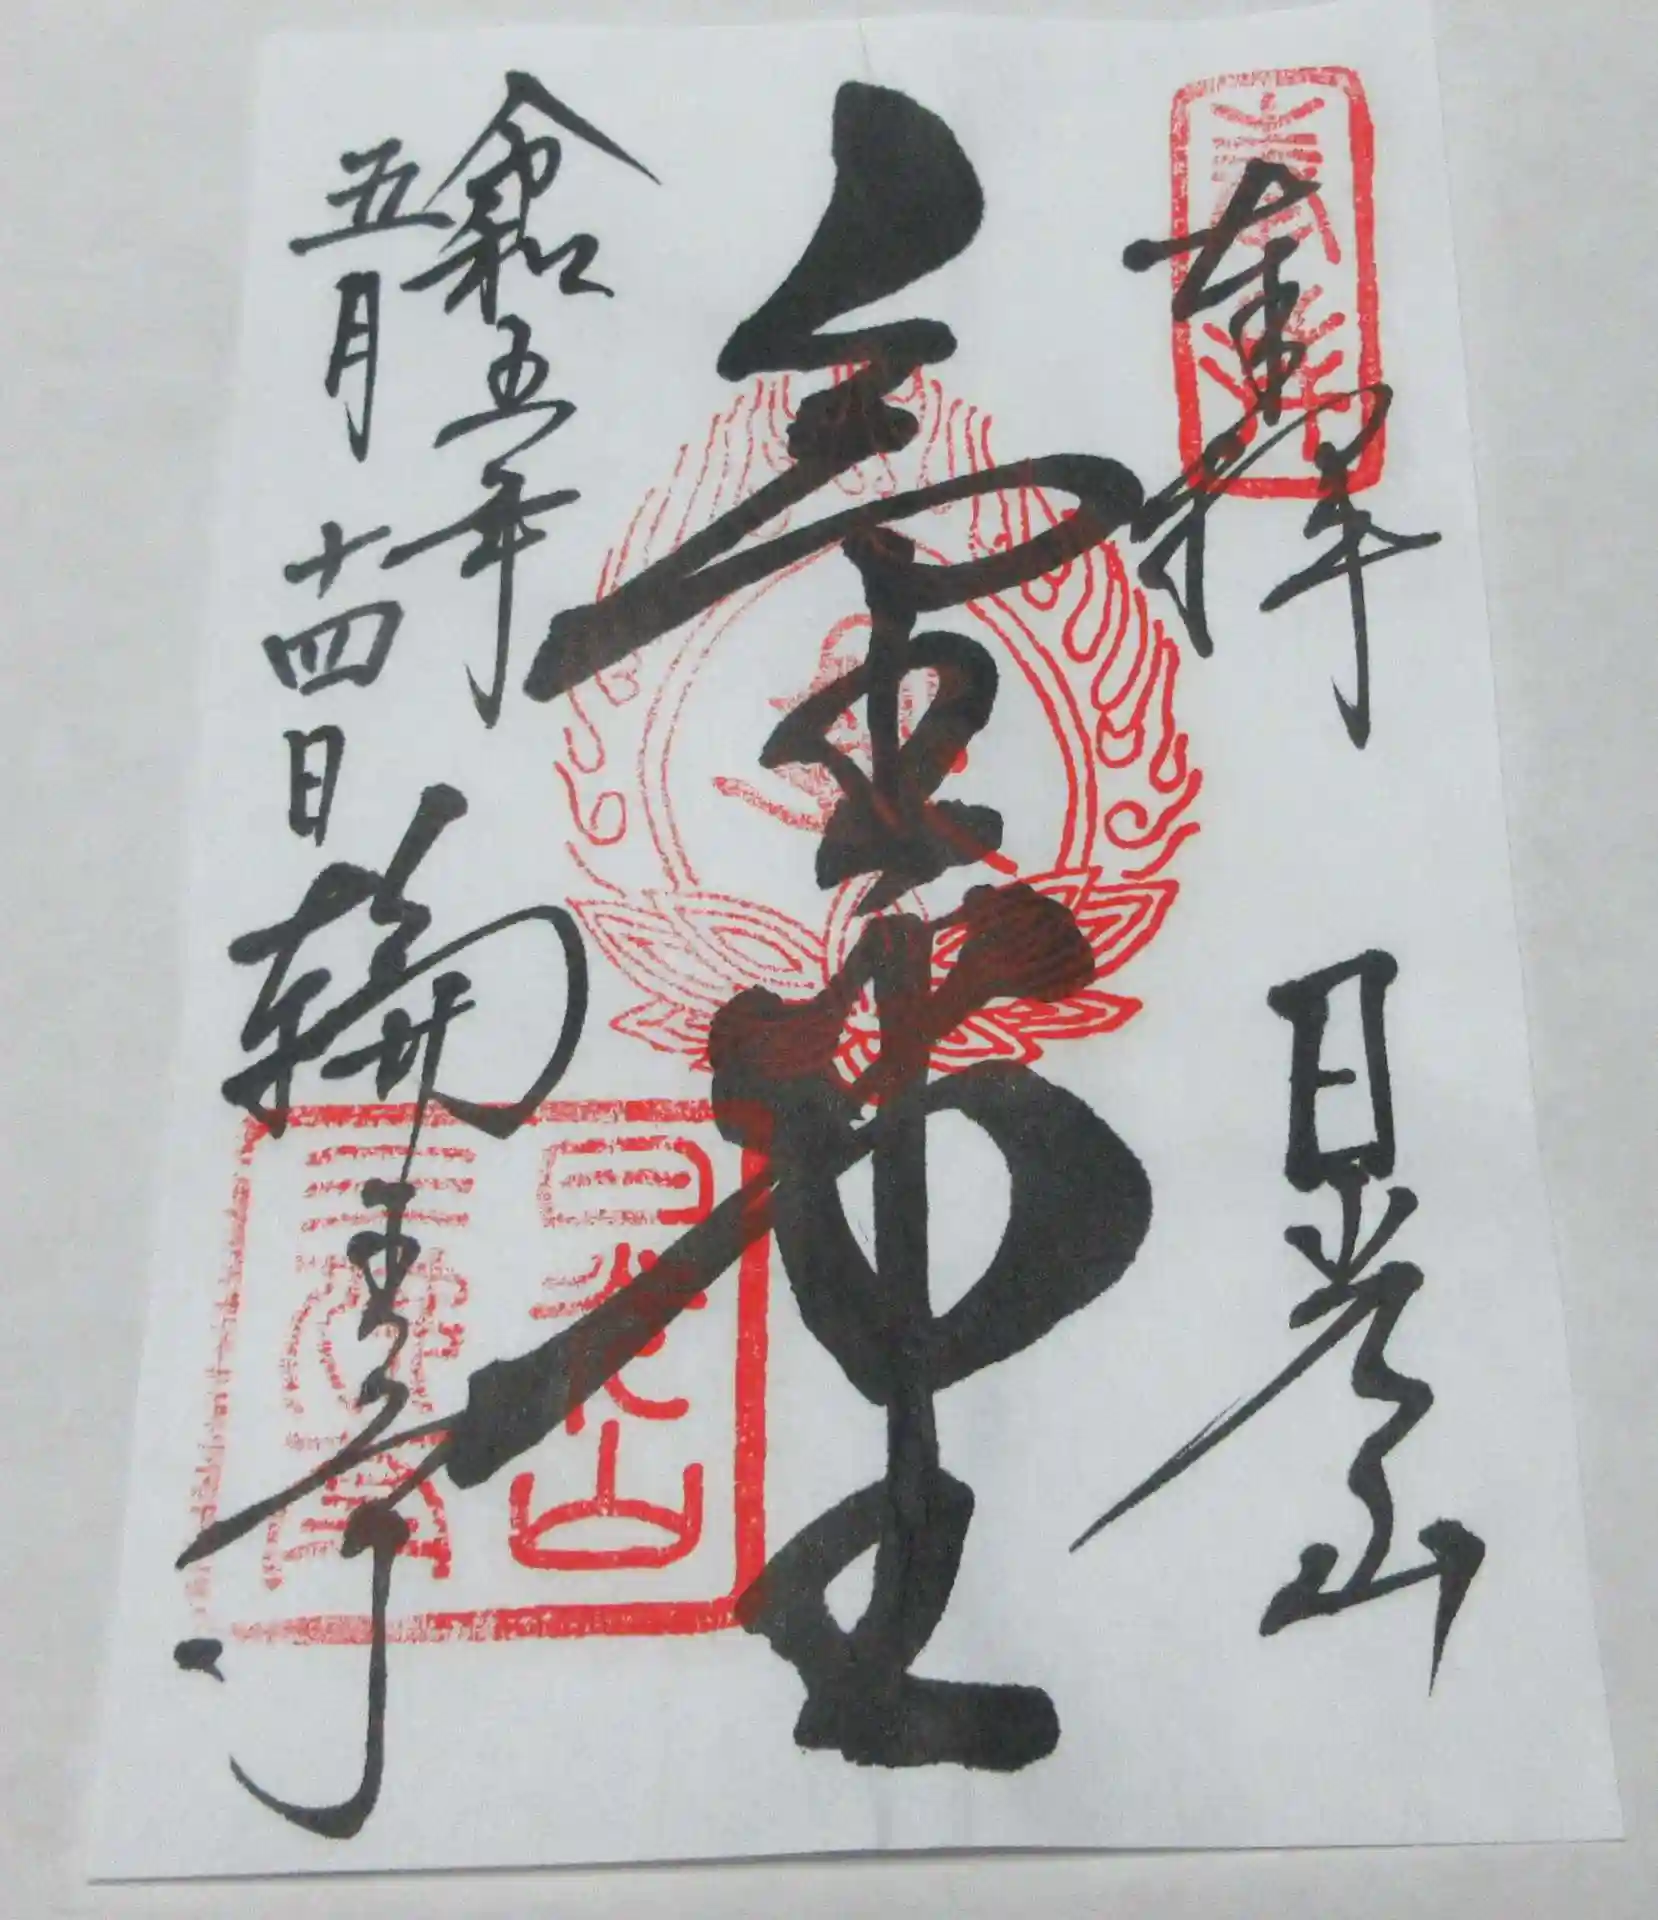 奉拝 日光山
金堂
令和五年
五月十四日 輪王寺
日光山